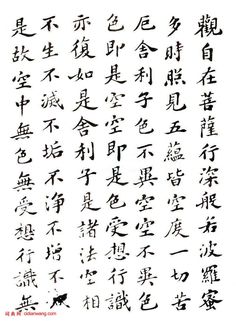 觀自在菩薩行深般若波羅蜜
多時照見五蘊皆空度一切苦
厄舍利子色不異空空不異色
色即是空空即是色受想行識
亦復如是舍利子是諸法空相
不生不滅不垢不淨不增不
是故空中無色無受想行識無
词典网
cidianwang.com